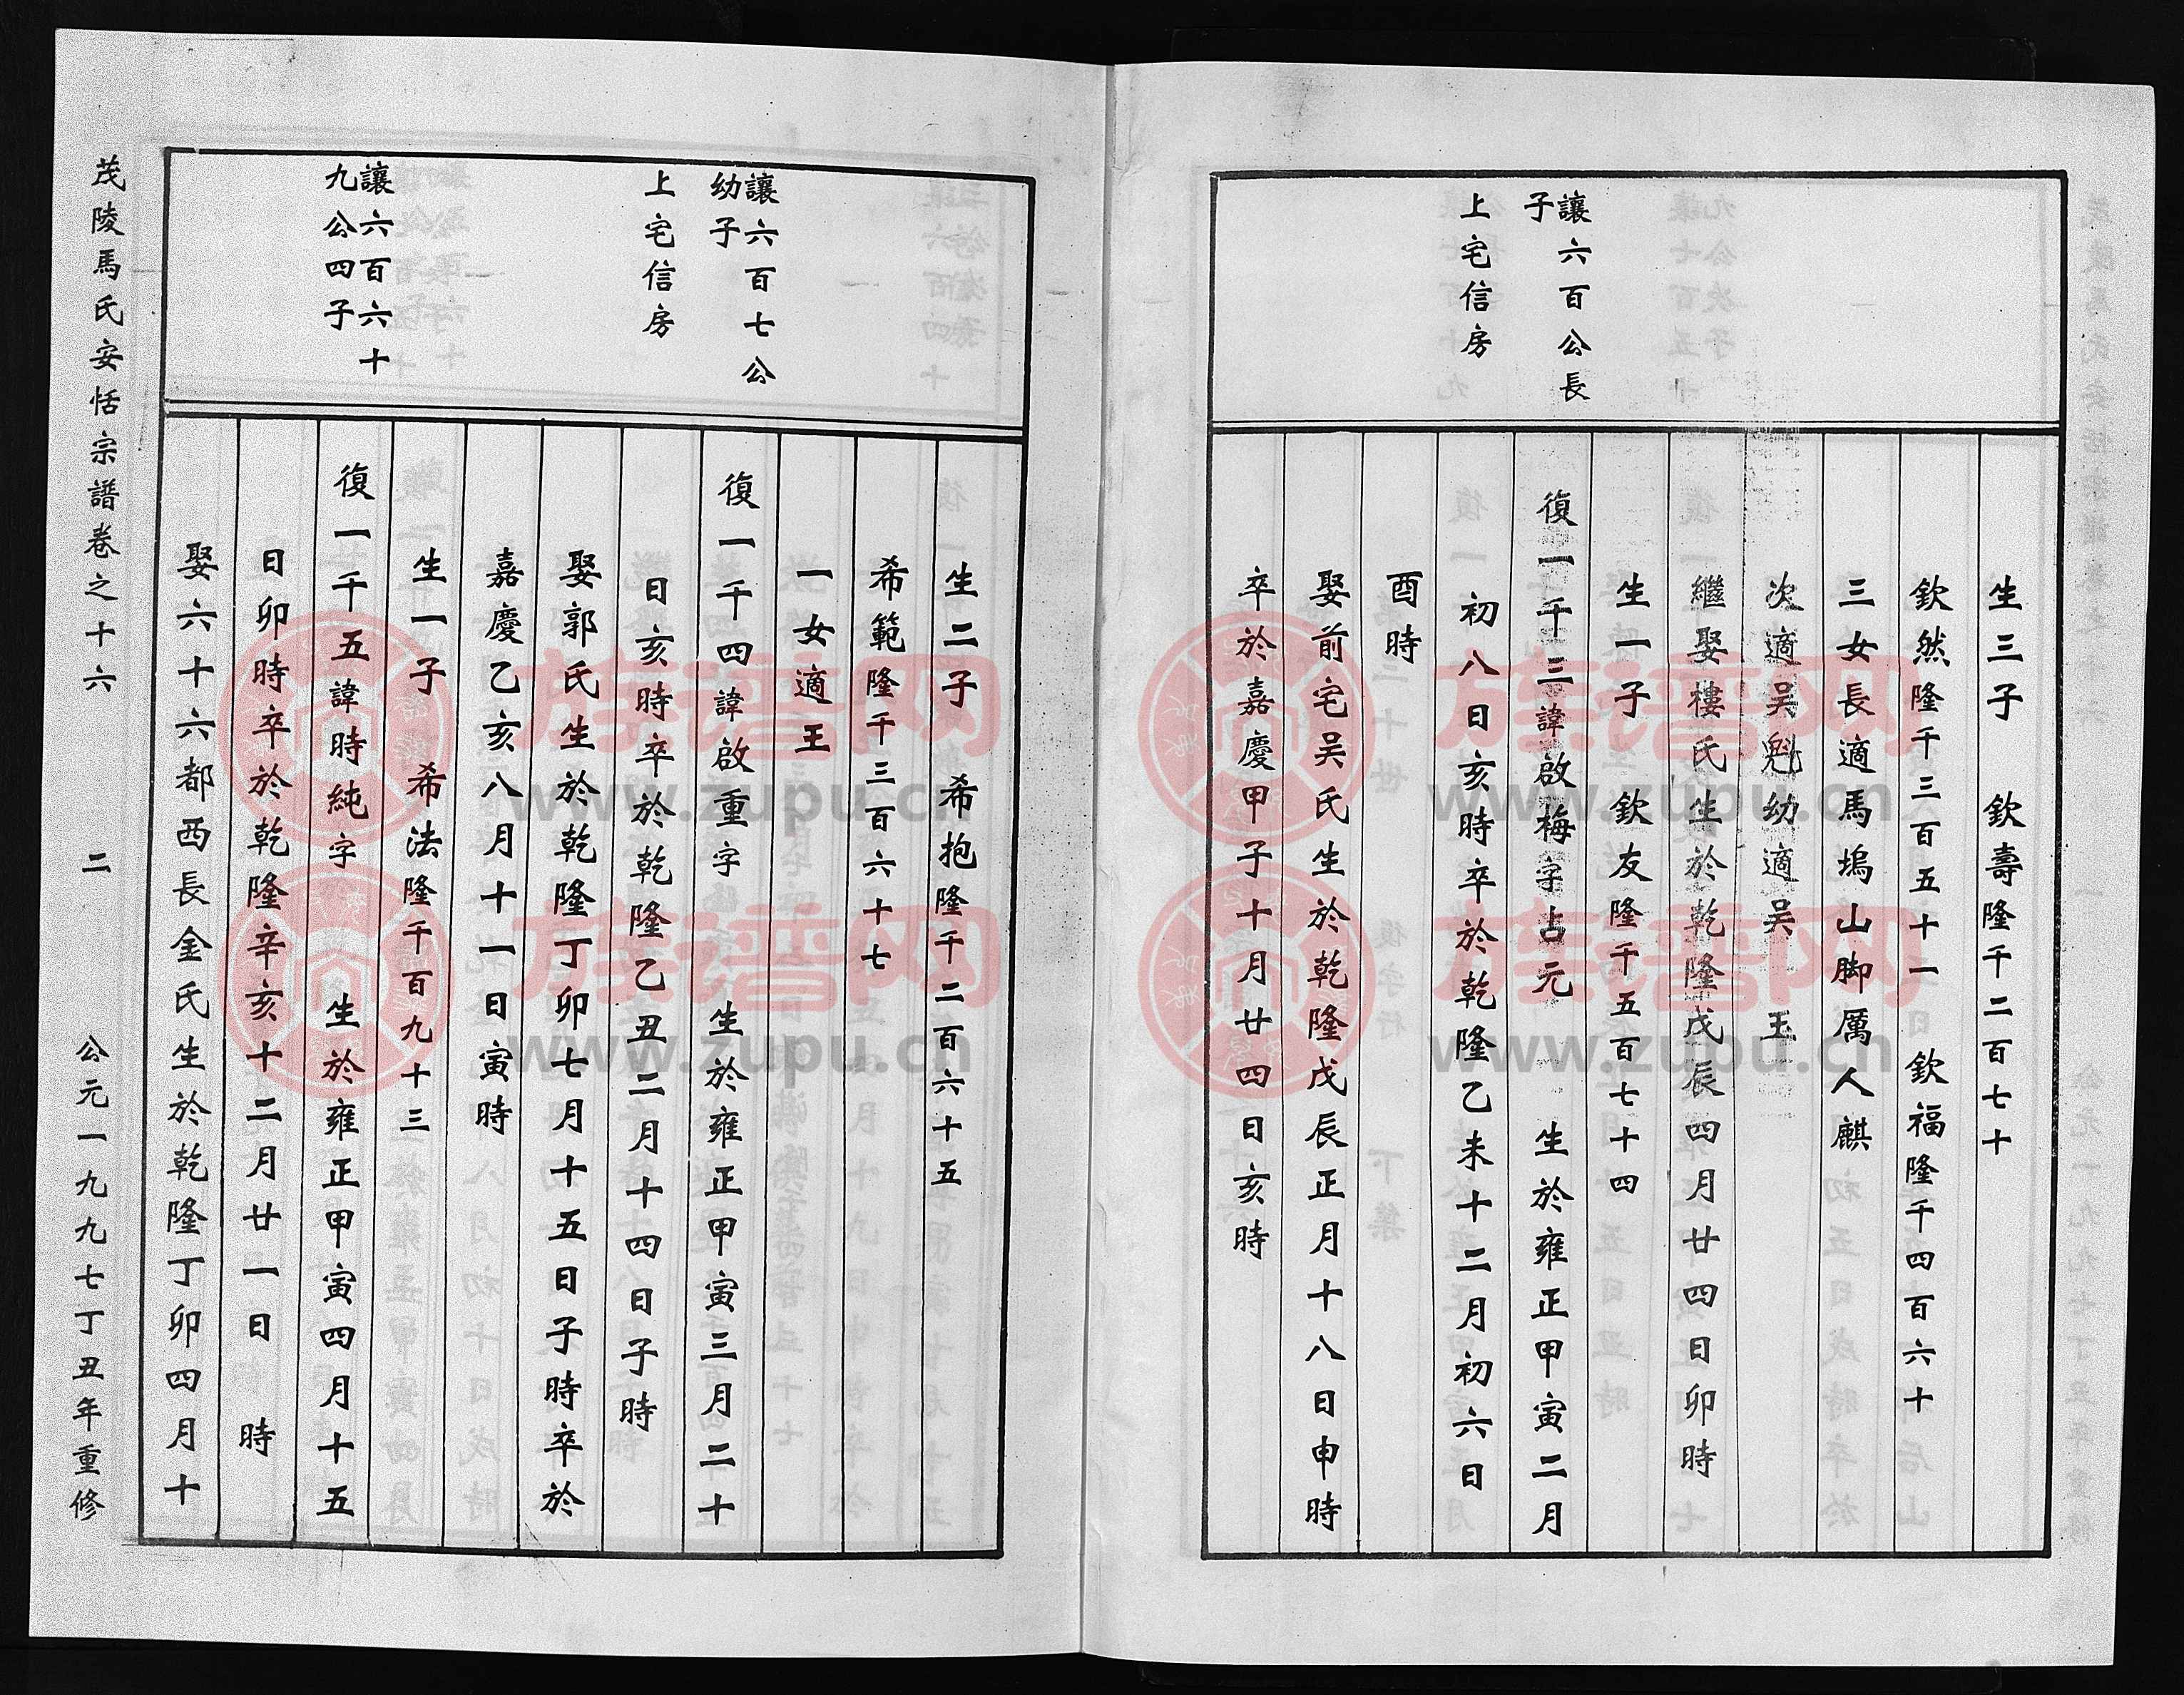 讓六百公長
子
上宅信房
生三子　欽壽隆千二百七十
欽然隆千三百五十一　欽福隆千四百六十
三女長適馬塢山脚厲人麒
次適吳魁幼適吳　玉
繼娶樓氏生於乾隆戊辰四月廿四日卯時
生一子　欽友隆千五百七十四
復一千三諱啟梅字占元　生於雍正甲寅二月
初八日亥時卒於乾隆乙未十二月初六日
酉時
娶前宅吴氏生於乾隆戊辰正月十八日申時
卒於嘉慶甲子十月廿四日亥時
讓六百七公
幼子
上宅信房
讓六百六十
九公四子
生二子　希抱隆千二百六十五
希範隆千三百六十七
一女適王
復一千四諱啟重字　生於雍正甲寅三月二十
日亥時卒於乾隆乙丑二月十四日子時
娶郭氏生於乾隆丁卯七月十五日子時卒於
嘉慶乙亥八月十一日寅時
生一子　希法隆千百九十三
復一千五諱時純字　生於雍正甲寅四月十五
日卯時卒於乾隆辛亥十二月廿一日　時
娶六十六都西長金氏生於乾隆丁卯四月十
茂陵馬氏安恬宗譜卷之十六　二　公元一九九七丁丑年重修
族谱网
www.zupu.cn
族谱网
www.zupu.cn
族谱网
www.zupu.cn
族谱网
www.zupu.cn